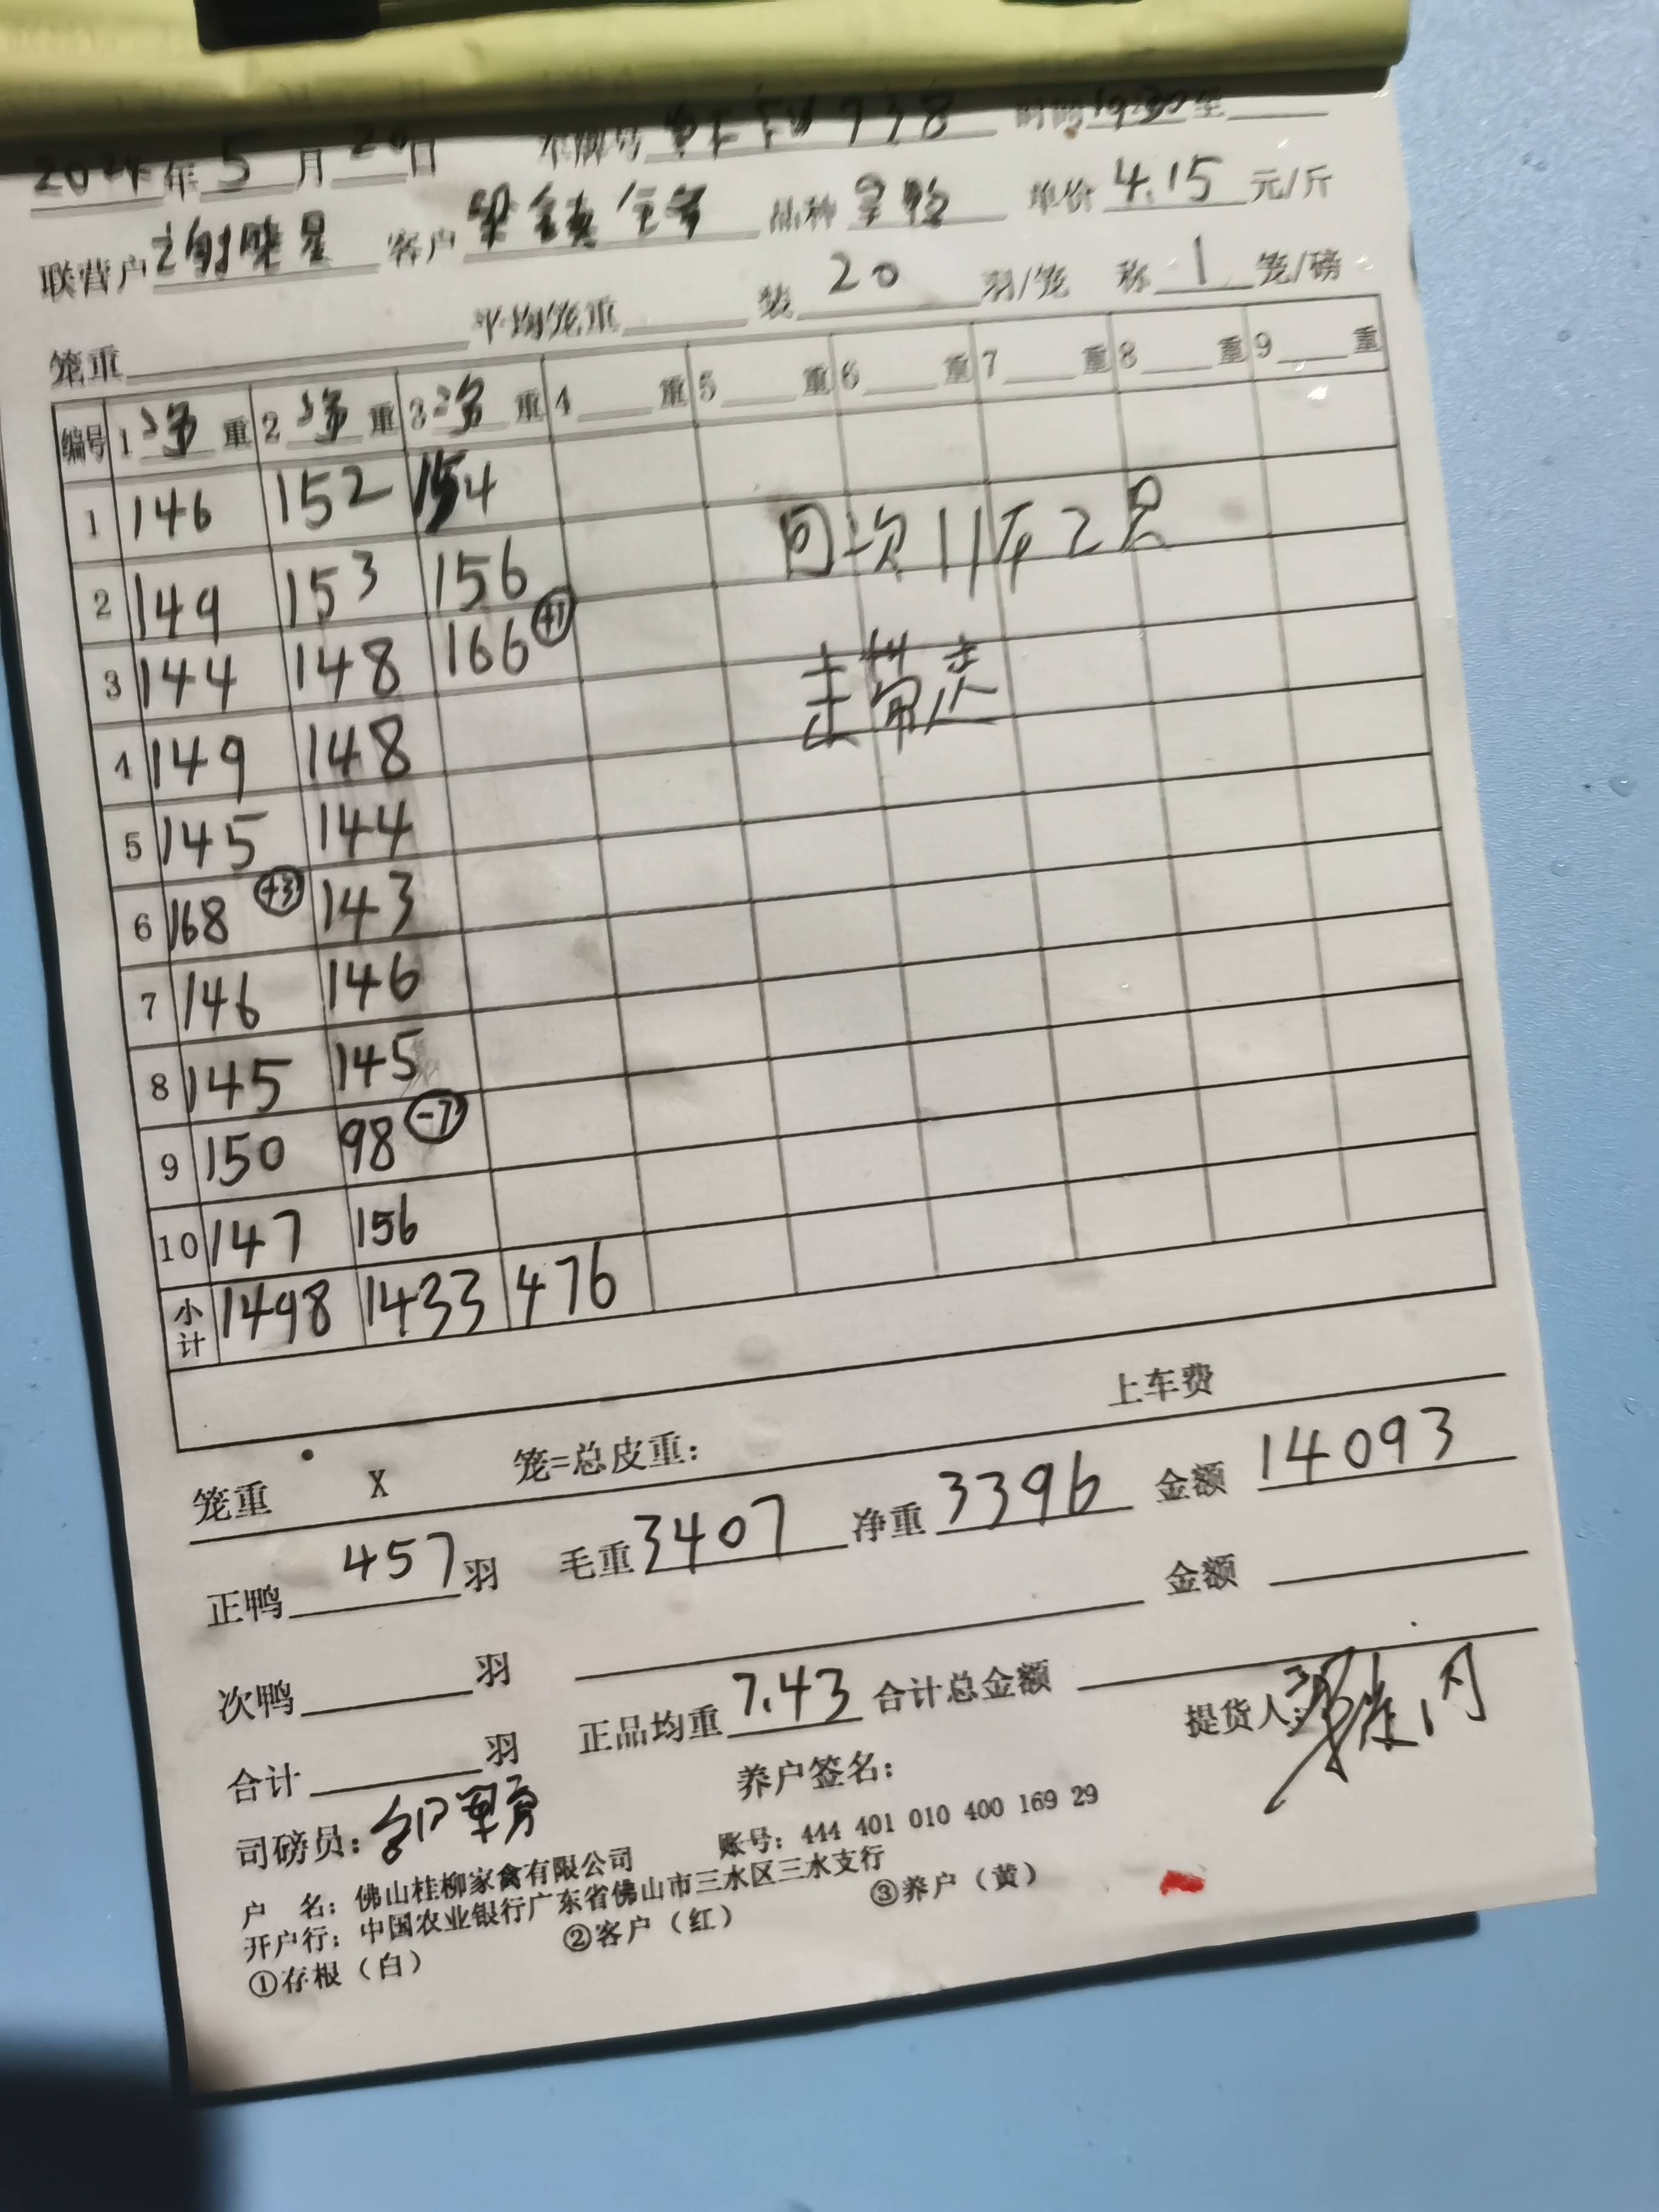 2024年5月20日 车牌号 738 时间 19:30至
联营户 客户 品种 单价4.15元/斤
笼重 平均笼重 装20羽/笼 称1笼/磅
编号 1净重 2净重 3净重 4重 5重 6重 7重 8重 9重
1 146 152 154
2 149 153 156
回次11斤2只
3 144 148 166 +1
未带走
4 149 148
5 145 144
6 168 +3 143
7 146 146
8 145 145
9 150 98 -7
10 147 156
小计 1498 1433 476
上车费
笼重 X 笼=总皮重:
正鸭457羽 毛重3407 净重3396 金额14093
次鸭羽 金额
合计羽 正品均重7.43 合计总金额
司磅员: 养户签名: 提货人:
户 名: 佛山桂柳家禽有限公司 账号: 444 401 010 400 169 29
开户行: 中国农业银行广东省佛山市三水区三水支行
①存根(白) ②客户(红) ③养户(黄)